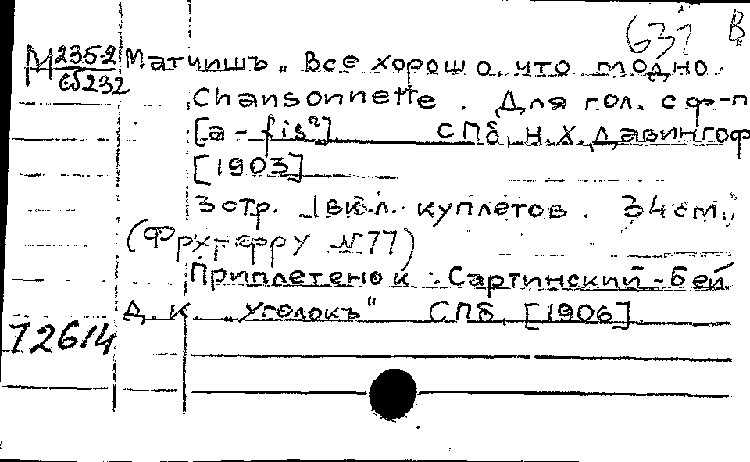 631 В
М 235-2 Матчишъ „Все хорошо, что модно.
сб232
Chansonnette. Для гол. с ф-п
[a - fis²] СПб, Н.Х. Давингоф
[1903]
3 стр. 1 вкл. куплетов. 34 см.
(Фрутерру №77)
Приплетено к: Сартинский-Бей
Д. К. „Уголокъ" СПб, [1906]
12614